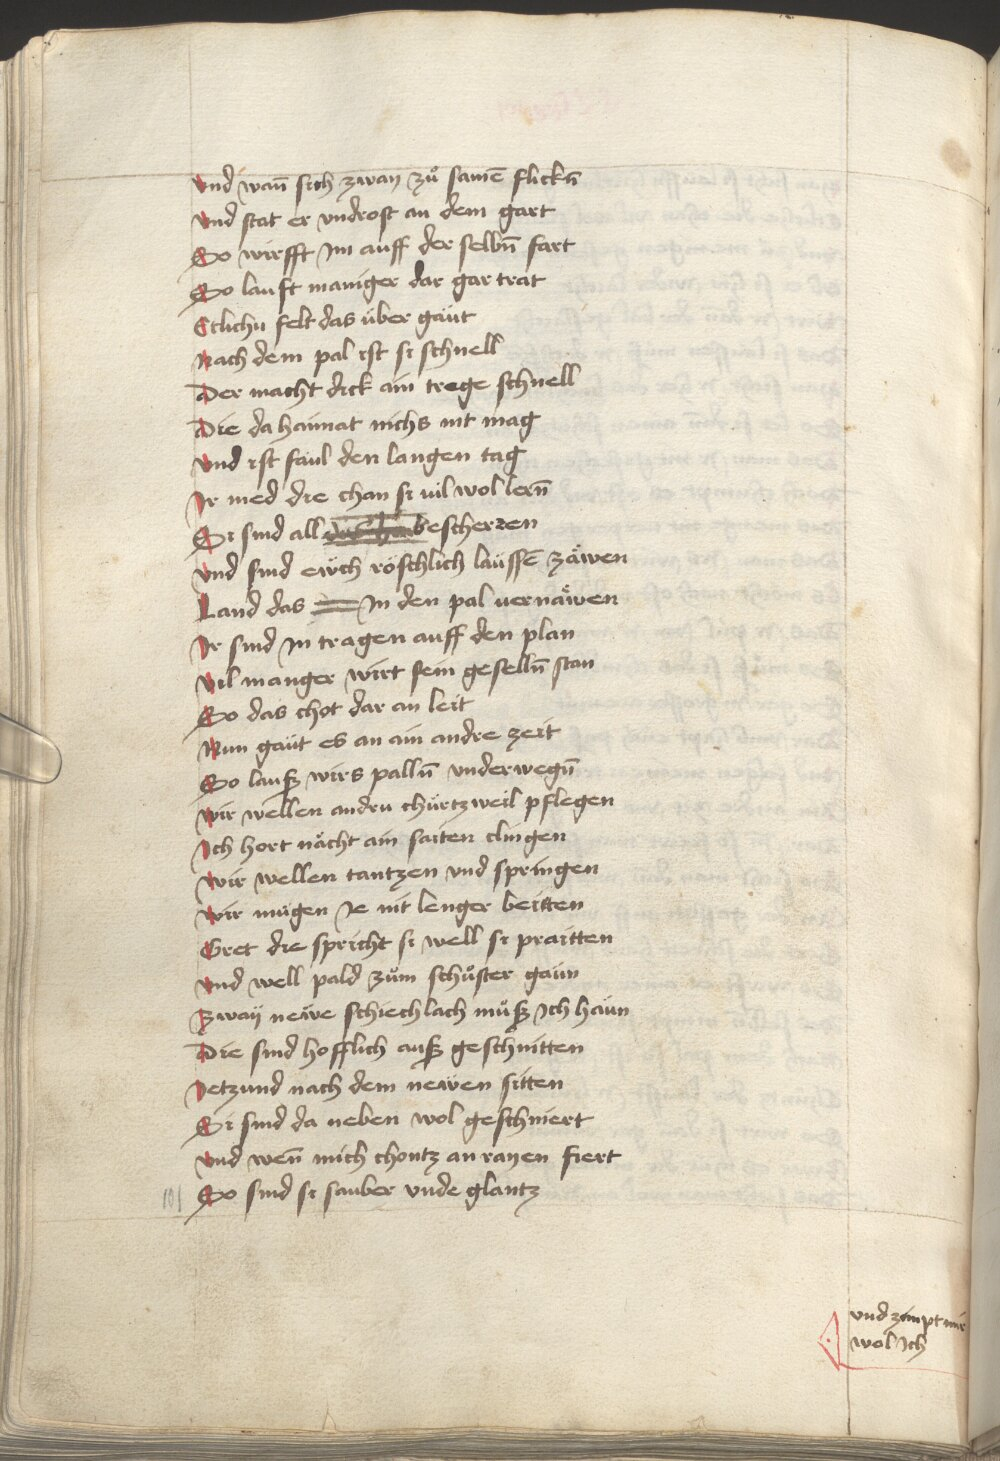 Vnd wan̄ sich zway zuͦ samē flickn̄
Vnd stat er vndrost an dem gart
So wirfft Im auff der selbn̄ fart
So lauft maniger dar gar trat
Etlichu felt das über gäut
Nach dem pal ist si schnell
Der macht dick ain trege schnell
Die da haimat nichs nit mag
Vnd ist faul den langen tag
Ir med die chan si uil wol lern̄
Si sind all bescherren
Vnd sind ewch röschlich lauffē zäwen
Land das In den pal vernäwen
Ir sind In tragen auff den plan
Vil manger wirt sein geselln̄ stan
So das chot dar an leit
Nun gäut es an ain andre zeit
So lauſz wirs palln̄ vnderwegn̄
Wir wellen andru churtzweil pflegen
Ich hort nächt ain saiten clingen
Wir wellen tantzen vnd springen
Wir mugen Ie nit lenger beitten
Gret die spricht si well si praitten
Vnd well pald zuͦm schuͦster gäun
Zwaÿ newe schiechlach muͦſz Ich haun
Die sind hofflich auſz geschnitten
Ietzund nach dem newen sitten
Si sind da neben wol geschmiert
Vnd wen̄ mich chontz an rayen fiert
So sind si sauber vnde glantz
101
vnd zimpt mir
wol Ich